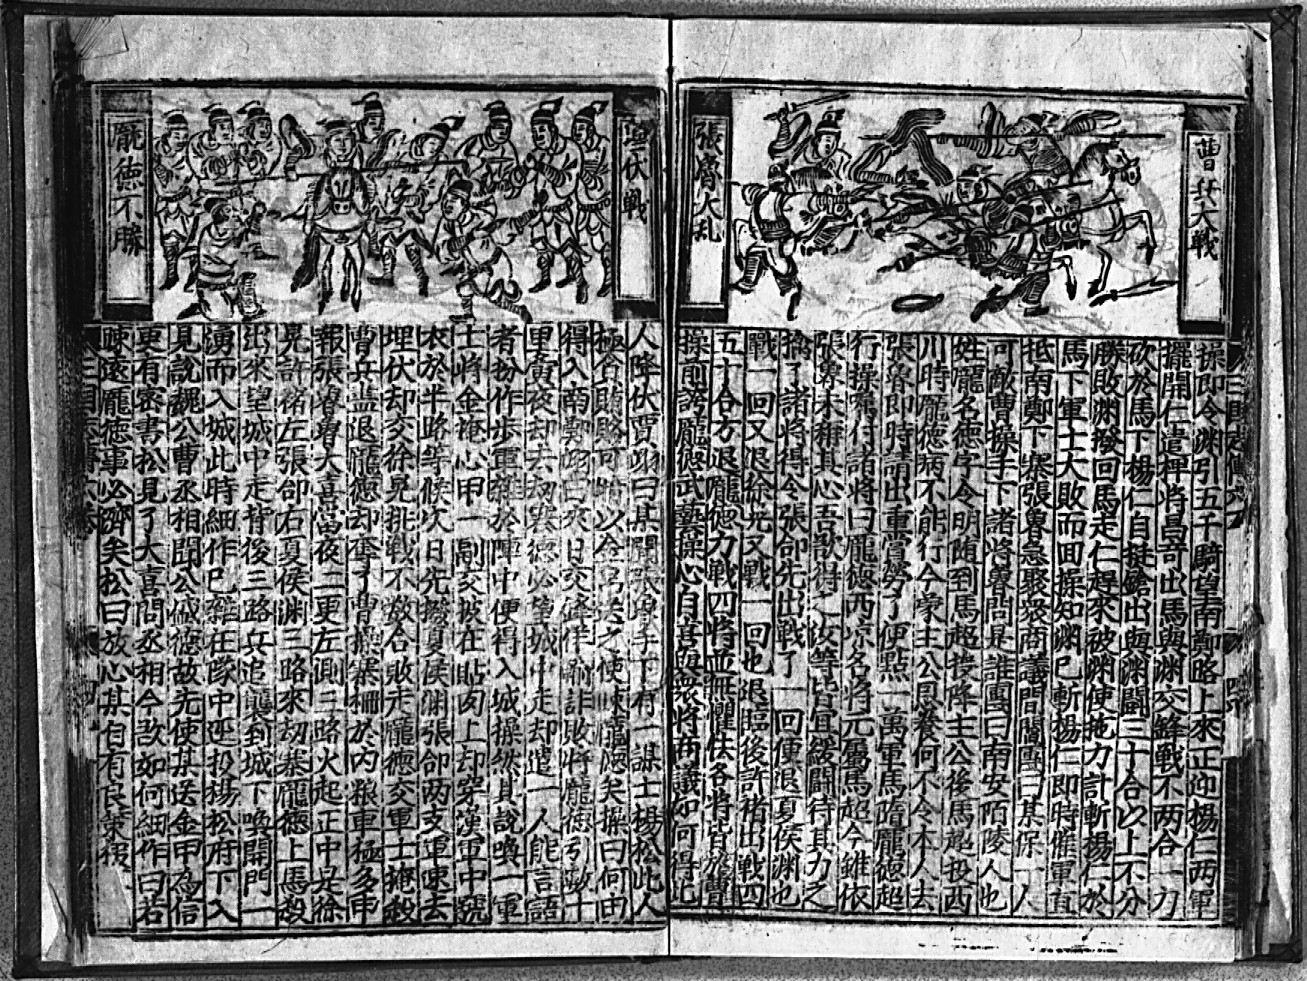 曹兵大戰
張魯大乱
操即令渊引五千騎望南鄭路上來正迎楊仁两軍
擺開仁遣禆將昌竒出馬與渊交鋒戰不两合一刀
砍於馬下楊仁自挺鎗出與渊鬪三十合以上不分
勝敗渊撥回馬走仁趕來被渊使拖刀計斬楊仁於
馬下軍士大敗而回操知渊已斬楊仁即時催軍直
抵南鄭下寨張魯急聚衆商議間閻圃曰某保一人
可敵曹操手下諸將魯問是誰圃曰南安陌陵人也
姓龐名德字令明随到馬超投降主公後馬超投西
川時龐德病不能行今蒙主公恩養何不令本人去
張魯即時請出重賞勞了便點一萬軍馬隋龐德起
行操囑付諸將曰龐德西凉名將元屬馬超今雖依
張魯未稱其心吾欲得之汝等皆宜緩鬪待其力乏
擒了諸將得令張郃先出戰了一回便退夏侯渊也
戰一回又退徐晃又戰一回也退臨後許禇出戰四
五十合方退龐德力戰四將並無懼怯各將皆於曹
操前誇龐德武藝操心自喜與衆將商議如何得此
埋伏戰
龐德不勝
人降伏賈诩曰某聞張魯手下有一謀士楊松此人
極合賄賂可暗以金
得入南鄭诩曰來日交鋒佯輸詐敗將龐德引
里黄夜却去刼寨德必望城中走却遣一人能言語
者扮作步軍雜於陣中便得入城操然其說喚一軍
士將金掩心甲一副交披在貼肉上却穿漢軍中號
衣於半路等候次日先撥夏侯渊張郃两支軍速去
埋伏却交徐晃挑戰不数合敗走龐德交軍士掩殺
曹兵盡退龐德却奪了曹操寨柵於内粮車極多申
報張魯魯大喜當夜二更左側三路火起正中是徐
晃許禇左張郃右夏侯渊三路來刼寨龐德上馬殺
出來望城中走背後三路兵追襲到城下喚開門一
湧而入城此時細作已雜在隊中逕投楊松府下入
見說魏公曹丞相聞公盛德故先使某送金甲為信
更有密書松見了大喜問丞相今欲如何細作曰若
踈遠龐德事必濟矣松曰放心某自有良策